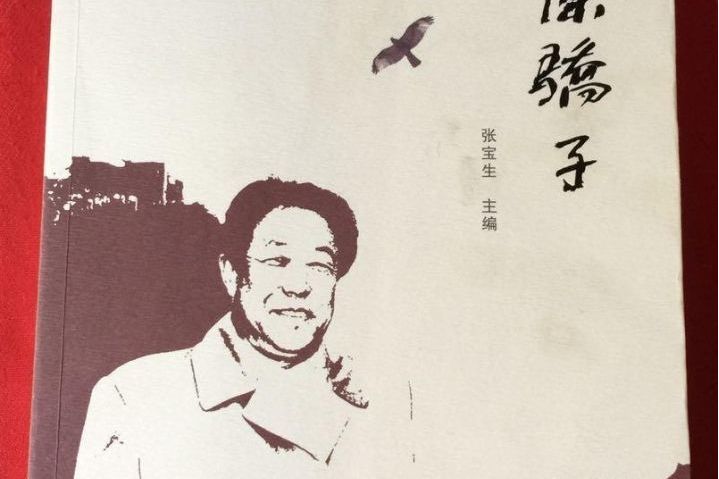 驕子
张宝生 主编